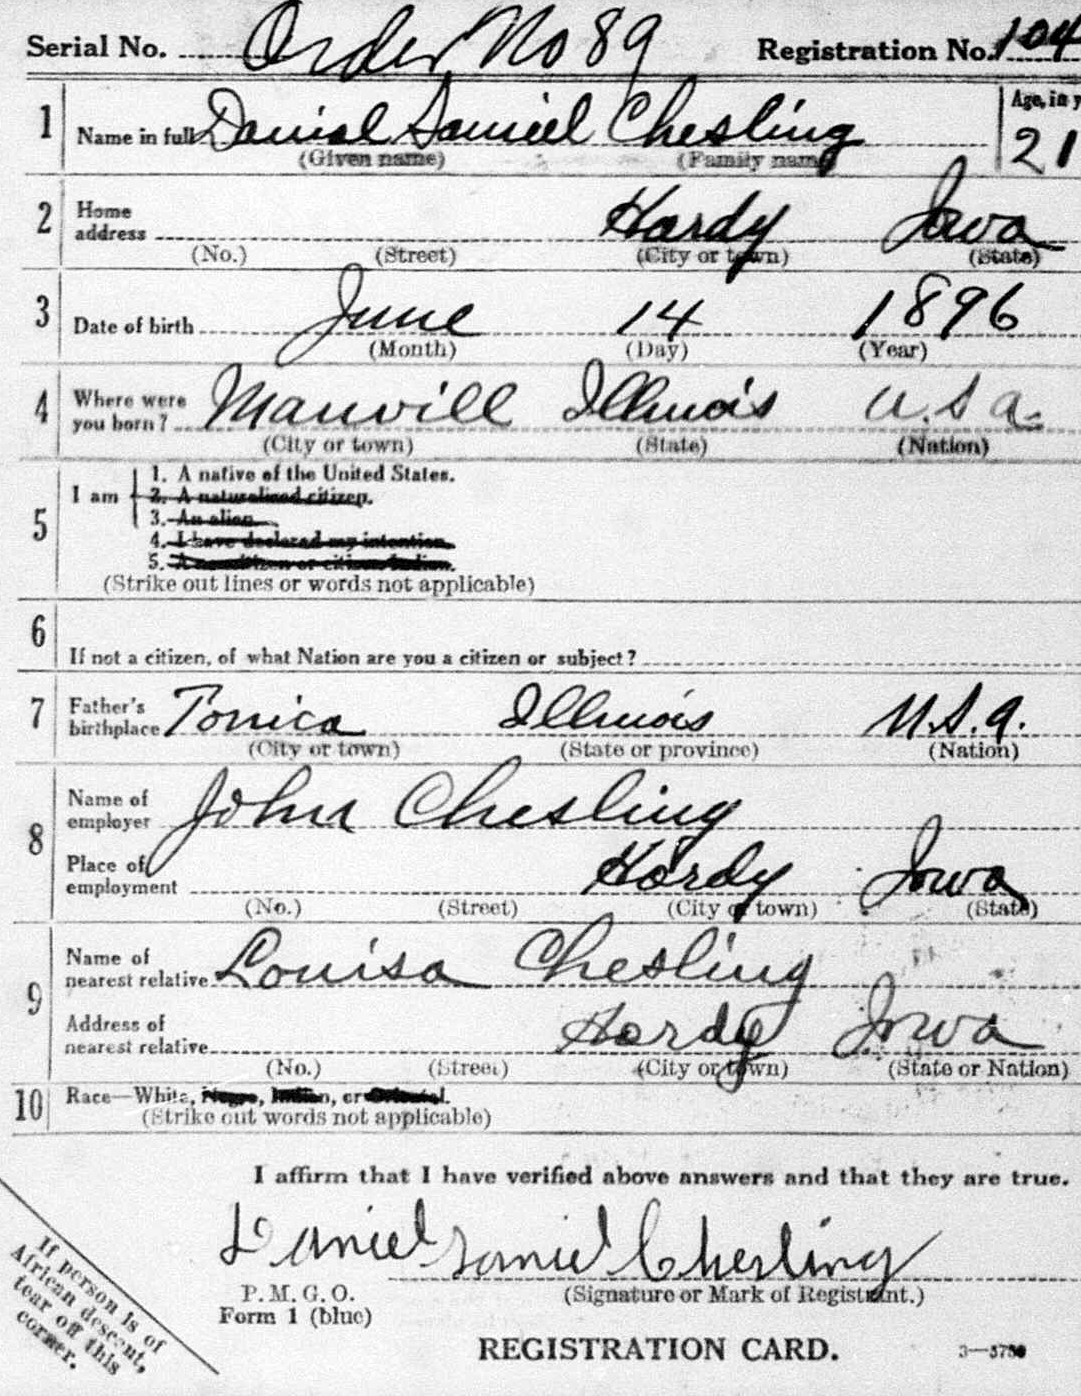 Serial No. Order No 89 Registration No. 104
1 Name in full Daniel Samuel Chesling Age, in y
(Given name) (Family name) 21
2 Home address Hardy Iowa
(No.) (Street) (City or town) (State)
3 Date of birth June 14 1896
(Month) (Day) (Year)
4 Where were you born? Manvill Illinois U.S.A.
(City or town) (State) (Nation)
5 I am 1. A native of the United States.
2. A naturalized citizen.
3. An alien.
4. I have declared my intention.
5. A noncitizen or citizen Indian.
(Strike out lines or words not applicable)
6 If not a citizen, of what Nation are you a citizen or subject?
7 Father's birthplace Tonica Illinois U.S.A.
(City or town) (State or province) (Nation)
8 Name of employer John Chesling
Place of employment Hardy Iowa
(No.) (Street) (City or town) (State)
9 Name of nearest relative Louisa Chesling
Address of nearest relative Hardy Iowa
(No.) (Street) (City or town) (State or Nation)
10 Race—White, Negro, Indian, or Oriental.
(Strike out words not applicable)
I affirm that I have verified above answers and that they are true.
Daniel Samuel Chesling
P. M. G. O. (Signature or Mark of Registrant.)
Form 1 (blue)
REGISTRATION CARD.
If person is of
African descent,
tear off this
corner.